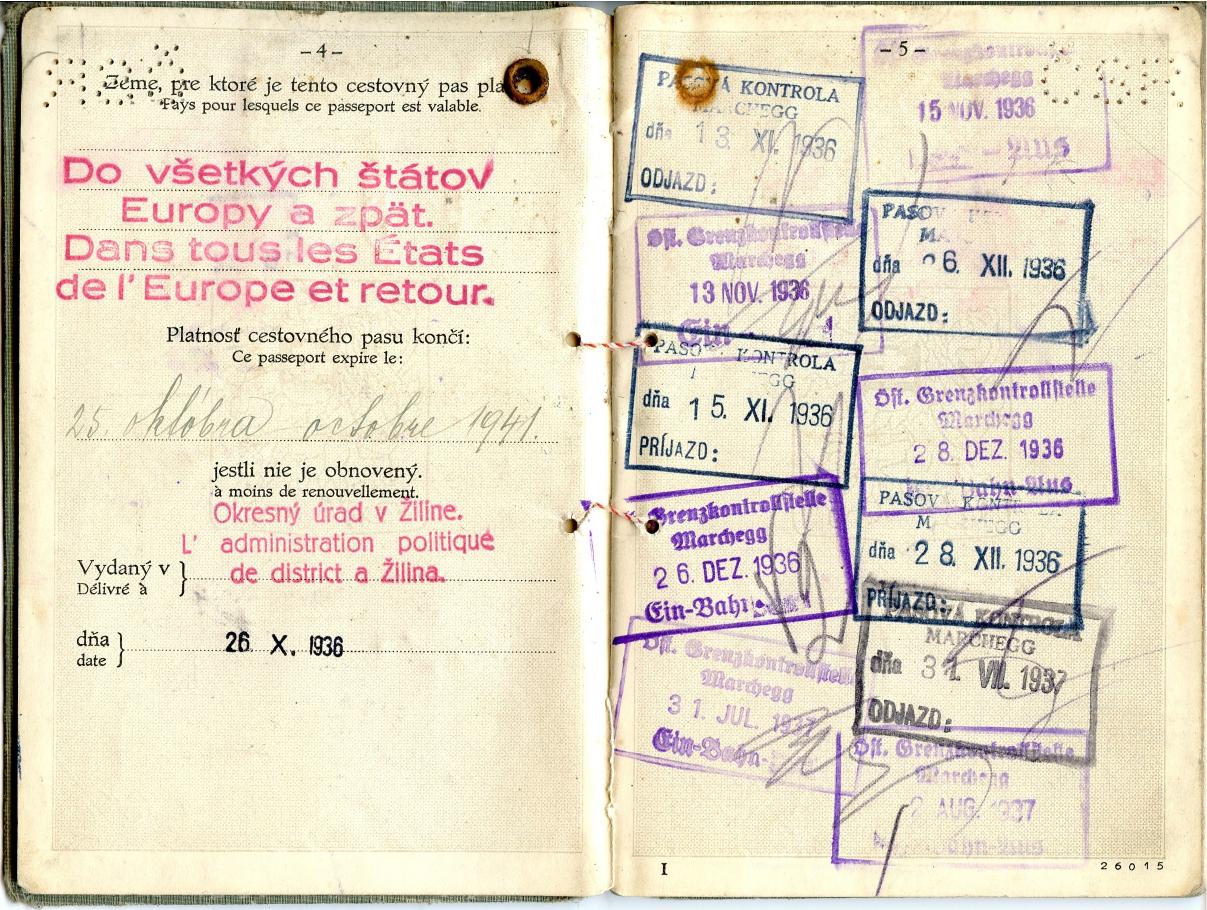 – 4 –
Zeme, pre ktoré je tento cestovný pas
Pays pour lesquels ce passeport est valable.
Do všetkých štátov
Europy a zpät.
Dans tous les États
de l' Europe et retour.
Platnosť cestovného pasu končí:
Ce passeport expire le:
25 októbra octobre 1941.
jestli nie je obnovený.
à moins de renouvellement.
Okresný úrad v Žiline.
L' administration politique
de district a Žilina.
Vydaný v
Délivré à
dňa
date
26 X. 1936
– 5 –
PASOVÁ KONTROLA
MARCHEGG
dňa 13 XI. 1936
ODJAZD:
Grenzkontrolls
Marchegg
15 NOV. 1936
Aus
Öst. Grenzkontrollstelle
Marchegg
13 NOV. 1936
Ein
PASOV
dňa 26. XII. 1936
ODJAZD:
PASOV KONTROLA
dňa 15. XI. 1936
PRÍJAZD:
Öst. Grenzkontrollstelle
Marchegg
28. DEZ. 1936
Bahn-Aus
Grenzkontrollstelle
Marchegg
26. DEZ. 1936
Ein-Bahn
PASOV KONTROLA
MARCHEGG
dňa 28. XII. 1936
PRÍJAZD:
PASOVÁ KONTROLA
MARCHEGG
dňa 31. VII. 1937
ODJAZD:
Öst. Grenzkontrollstelle
Marchegg
31. JUL. 1937
Ein-Bahn-
Öst. Grenzkontrollstelle
Marchegg
2 AUG. 1937
Bahn-Aus
I
26015